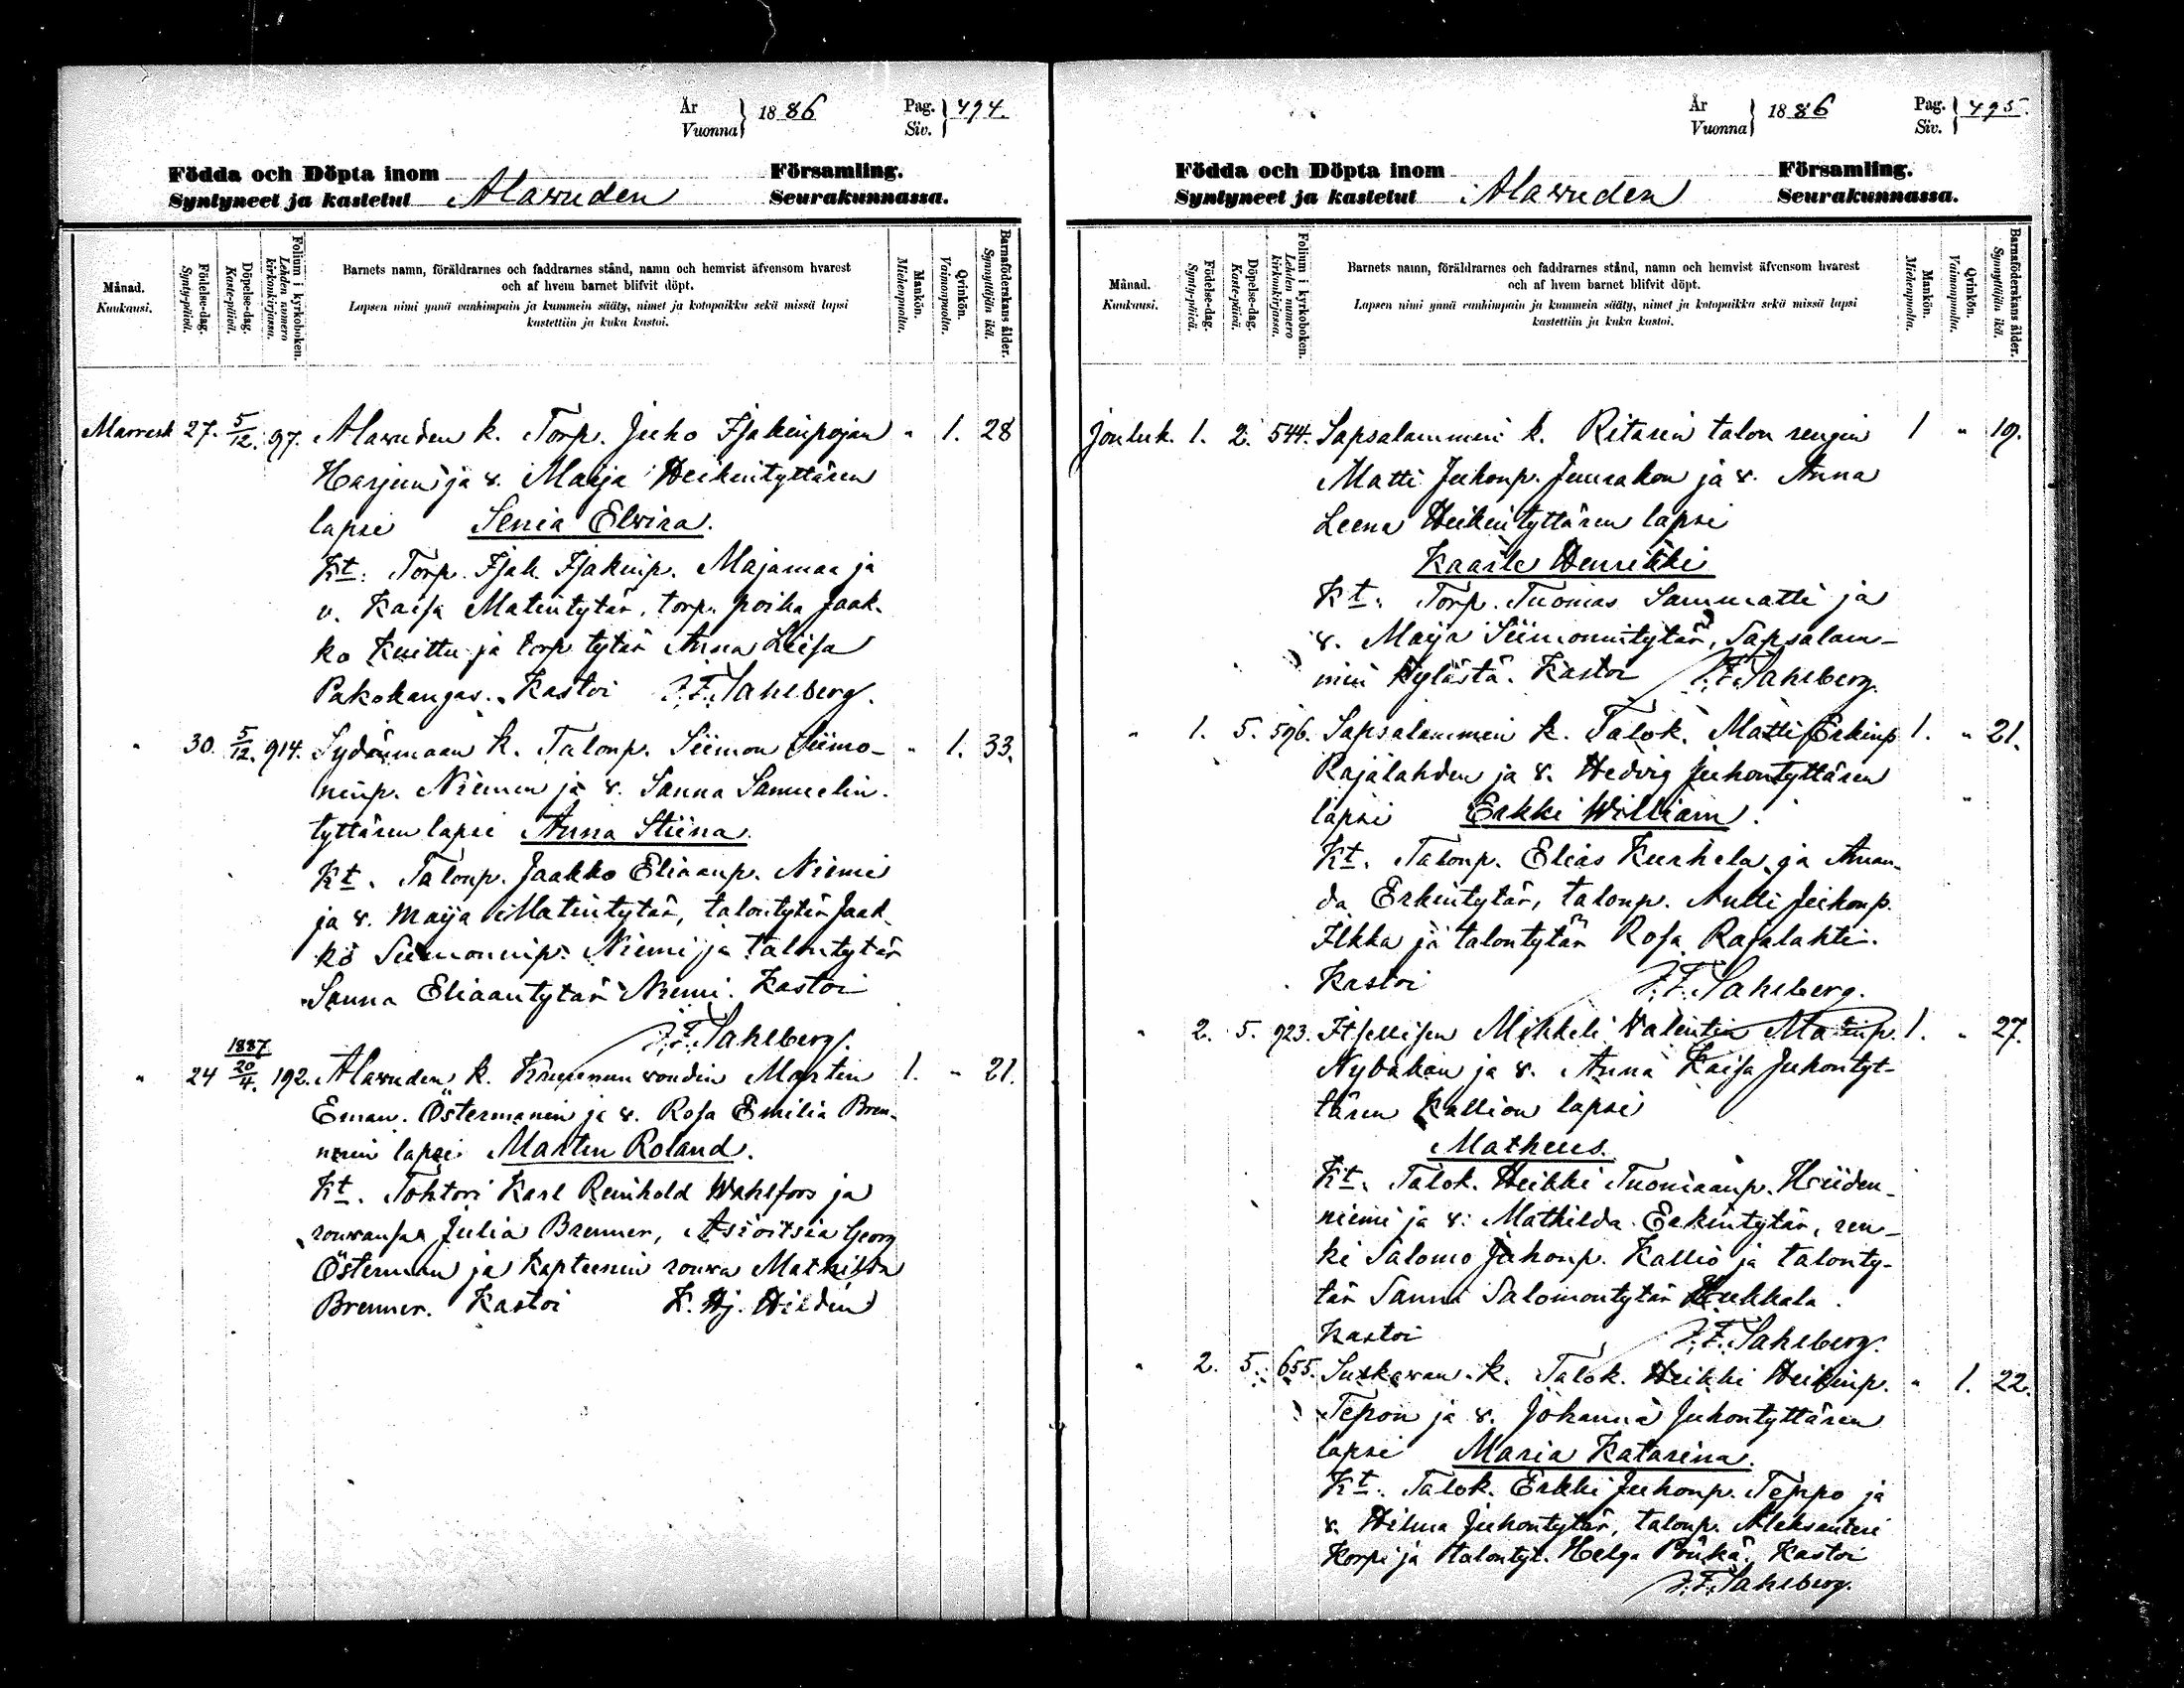 År
Vuonna
1886
Pag.
Siv.
494.
Födda och Döpta inom
Församling.
Syntyneet ja kastetut
Alavuden
Seurakunnassa.
Månad.
Kuukausi.
Födelse-dag.
Synty-päivä.
Döpelse-dag.
Kaste-päivä.
Folium i kyrkoboken.
Lehden numero kirkonkirjassa.
Barnets namn, föräldrarnes och faddrarnes stånd, namn och hemvist äfvensom hvarest
och af hvem barnet blifvit döpt.
Lapsen nimi ynnä vanhimpain ja kummein sääty, nimet ja kotopaikka sekä missä lapsi
kastettiin ja kuka kastoi.
Mankön.
Miehenpuolta.
Qvinkön.
Vaimonpuolta.
Barnaföderskans ålder.
Synnyttäjän ikä.
Marresk 27. 5/12. 97. Alavuden k. Torp. Juho Isakinpojan " 1. 28
Harjun ja v. Maija Heikintyttären
lapsi Senia Elvira.
Kt: Torp. Isak Isakinp. Majamaa ja
v. Kaisa Matintytär, torp. poika Jaak-
ko Kuittu ja torp. tytär Anna Liisa
Pakokangas. Kastoi J. F. Sahlberg.
" 30. 5/12. 914. Sydänmaan k. Talonp. Siimon Siimo- " 1. 33.
ninp. Niemen ja v. Sanna Samuelin-
tyttären lapsi Anna Stiina.
Kt. Talonp. Jaakko Eliaanp. Niemi
ja v. Maija Matintytär, talontytär Jaak-
ko Siimoninp. Niemi ja talontytär
Sanna Eliaantytär Niemi. Kastoi
J. F. Sahlberg.
" 24 1887 20/4. 192. Alavuden k. Kruunun voudin Martin 1. " 21.
Eman. Östermanin ja v. Rosa Emilia Bren-
nerin lapsi Martin Roland.
Kt. Tohtori Karl Reinhold Wahlfors ja
rouvansa Julia Brenner, Asioitsia Georg
Österman ja Kapteenin rouva Mathilda
Brenner. Kastoi K. Hj. Hildén
År
Vuonna
1886
Pag.
Siv.
495.
Födda och Döpta inom
Församling.
Syntyneet ja kastetut
Alavuden
Seurakunnassa.
Månad.
Kuukausi.
Födelse-dag.
Synty-päivä.
Döpelse-dag.
Kaste-päivä.
Folium i kyrkoboken.
Lehden numero kirkonkirjassa.
Barnets namn, föräldrarnes och faddrarnes stånd, namn och hemvist äfvensom hvarest
och af hvem barnet blifvit döpt.
Lapsen nimi ynnä vanhimpain ja kummein sääty, nimet ja kotopaikka sekä missä lapsi
kastettiin ja kuka kastoi.
Mankön.
Miehenpuolta.
Qvinkön.
Vaimonpuolta.
Barnaföderskans ålder.
Synnyttäjän ikä.
Jouluk. 1. 2. 544. Sapsalammin k. Ritarin talon rengin 1 " 19.
Matti Juhonp. Juurakon ja v. Anna
Leena Heikintyttären lapsi
Kaarle Henrikki
Kt. Torp. Tuomas Sammatti ja
v. Maija Siimonintytär, Sapsalam-
min kylästä. Kastoi J. F. Sahlberg.
" 1. 5. 596. Sapsalammin k. Talok. Matti Erkinp. 1. " 21.
Rajalahden ja v. Hedvig Juhontyttären
lapsi Erkki William.
Kt. Talonp. Elias Kurhela ja Aman-
da Erkintytär, talonp. Antti Juhonp.
Ilkka ja talontytär Rosa Rajalahti.
Kastoi J. F. Sahlberg.
" 2. 5. 923. Itsellisen Mikkeli Valentin Matinp. 1. " 27.
Nybakan ja v. Anna Kaisa Juhontyt-
tären Kallion lapsi
Matheus.
Kt. Talok. Heikki Tuomaanp. Hiiden-
niemi ja v. Mathilda Erkintytär, ren-
ki Salomo Juhonp. Kallio ja talonty-
tär Sanna Salomontytär Hukkala.
Kastoi J. F. Sahlberg.
" 2. 5. 655. k. Talok. Heikki Heikinp. " 1. 22.
Tepon ja v. Johanna Juhontyttären
lapsi Maria Katarina.
Kt. Talok. Erkki Juhonp. Teppo ja
v. Hilma Juhontytär, talonp. Aleksanteri
Korpi ja talontyt. Helga Kastoi
J. F. Sahlberg.